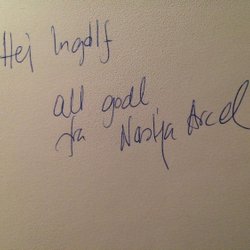 Hej Ingolf
all godt
fra Nastja Arcel